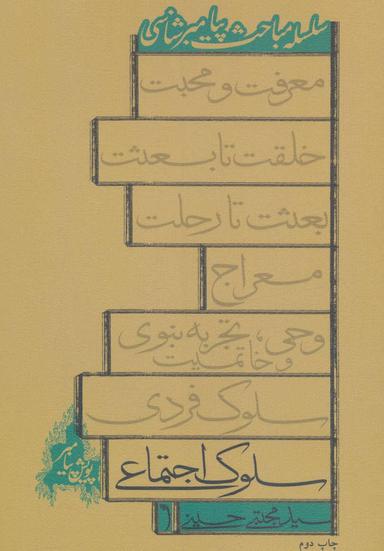 سلسله مباحث پیامبرشناسی
معرفت و محبت
خلقت تا بعثت
بعثت تا رحلت
معراج
وحی، تجربه نبوی
و خاتمیت
سلوک فردی
سلوک اجتماعی
سید مجتبی حسینی
چاپ دوم